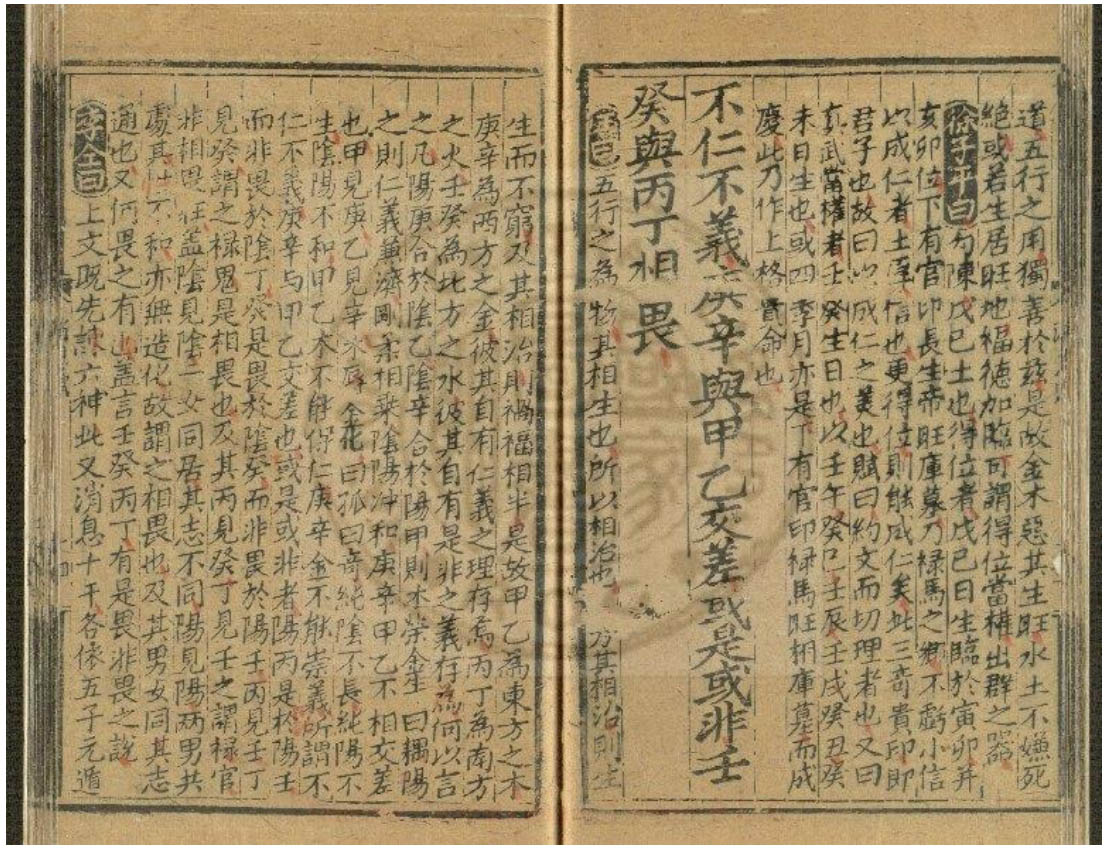 道五行之用獨善於茲是故金木惡其生旺水土不嫌死
絶或若生居旺地福徳加臨可謂得位當權出群之器
徐子平曰勾陳戊巳土也得位者戊巳日生臨於寅卯并
亥卯位下有官印長生帝旺庫墓乃禄馬之鄉不虧小信
以成仁者土厚信也更得位則能成仁矣此三竒貴印即
君子也故曰以成仁之美也賦曰約文而切理者也又曰
真武當權者壬癸生日也以壬午癸巳壬辰壬戌癸丑癸
未日生也或四季月亦是下有官印禄馬旺相庫墓而成
慶此乃作上格貴命也
不仁不義庚辛與甲乙交差或是或非壬
癸與丙丁相畏
五行之為物其相生也所以相治也 方其相治則生
生而不窮及其相治則禍福相半是故甲乙為東方之木
庚辛為西方之金彼其自有仁義之理存焉丙丁為南方
之火壬癸為北方之水彼其自有是非之義存焉何以言
之凡陽庚合於陰乙陰辛合於陽甲則木榮金生 曰耦陽
之則仁義兼濟剛柔相乗陰陽冲和庚辛甲乙不相交差
也甲見庚乙見辛 金化曰孤曰竒純陰不長純陽不
生陰陽不和甲乙木不能保仁庚辛金不能崇義所謂不
仁不義庚辛与甲乙交差也或是或非者陽丙是於陽壬
而非畏於陰丁癸是畏於陰癸而非畏於陽壬丙見壬丁
見癸謂之禄鬼是相畏也及其丙見癸丁見壬之謂禄官
非相畏 盖陰見陰二女同居其志不同陽見陽两男共
處其 不和亦無造化故謂之相畏也及其男女同其志
通也又何畏之有 盖言壬癸丙丁有是畏非畏之說
李仝曰上文既先 六神此又消息十干各依五子元遁